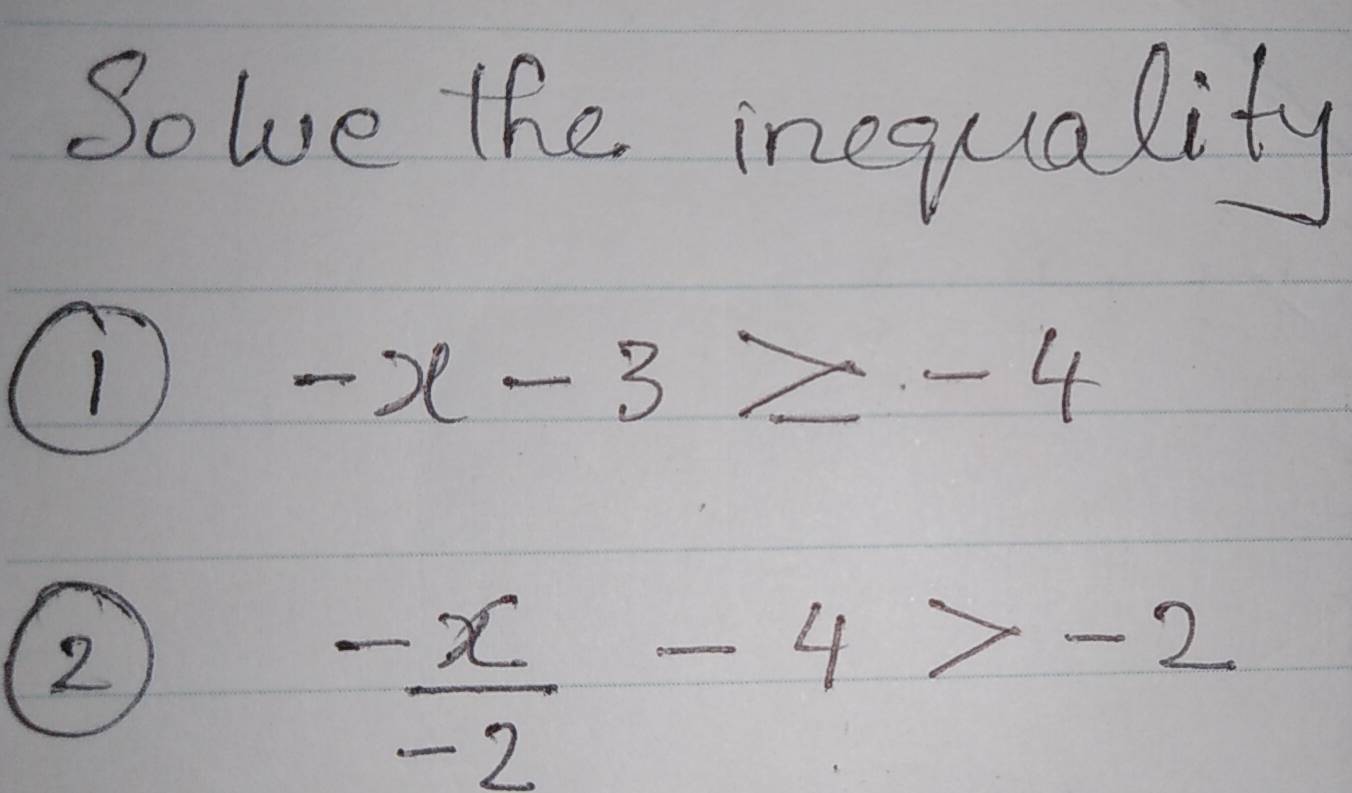 Solve the inequality
① -x - 3 ≥ - 4
② -x/-2 - 4 > -2